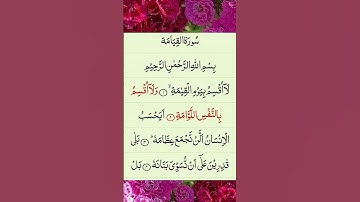 سُورَةُ الْقِيَامَة
بِسْمِ اللهِ الرَّحْمٰنِ الرَّحِيْمِ
لَاۤ اُقْسِمُ بِيَوْمِ الْقِيٰمَةِ ۙ ۱ وَلَاۤ اُقْسِمُ
بِالنَّفْسِ اللَّوَّامَةِ ۲ اَيَحْسَبُ
الْاِنْسَانُ اَلَّنْ نَّجْمَعَ عِظَامَهٗ ؕ ۳ بَلٰى
قٰدِرِيْنَ عَلٰۤى اَنْ نُّسَوِّىَ بَنَانَهٗ ۴ بَلْ